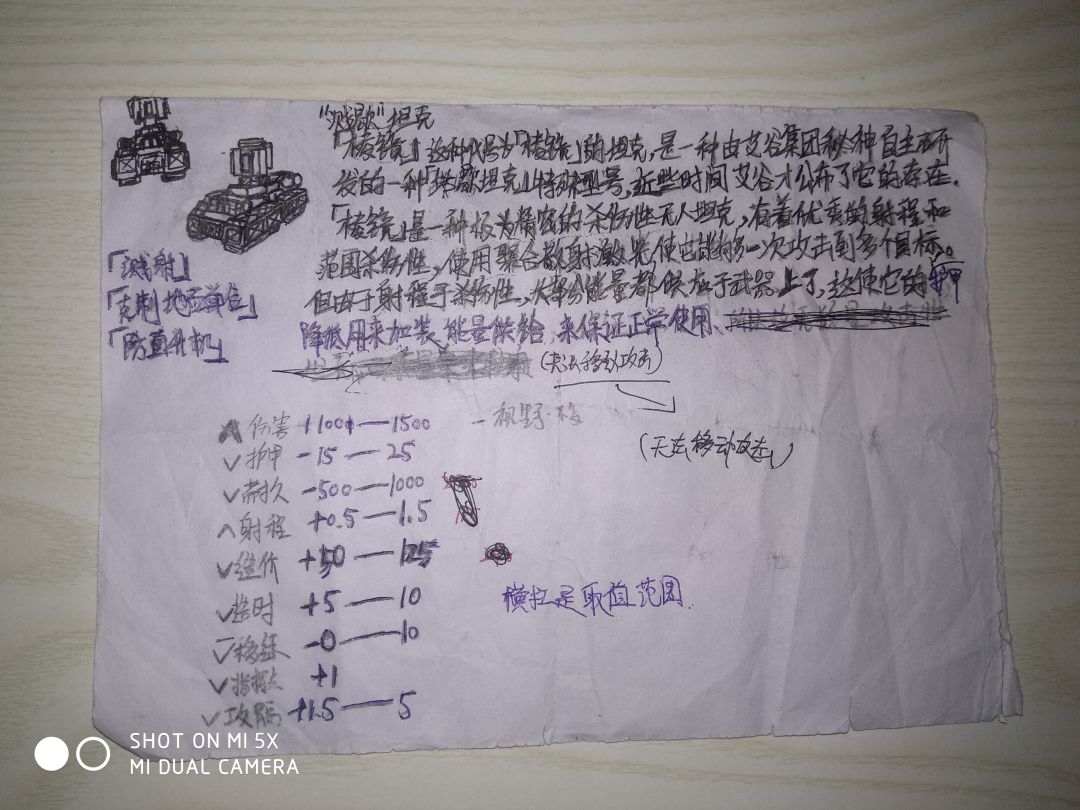 坦克
「棱镜」这种代号为「棱镜」的坦克，是一种由艾谷集团秘神自主研
发的一种「坦克」特殊型号，近些时间艾谷才公布了它的存在.
「棱镜」是一种极为精密的杀伤性无人坦克，有着优秀的射程和
范围杀伤性，使用聚合散射激光使它能够一次攻击到多个目标。
但由于射程于杀伤性，大部分能量都供应于武器上了，这使它的护甲
降低用来加装能量供给，来保证正常使用、
(无法移动攻击)
「溅射」
「克制地面单位」
「防直升机」
伤害 +1001—1500
一视野·不变
(无法移动攻击)
护甲 -15—25
耐久 -500—1000
射程 +0.5—1.5
造价
造时 +5—10
移速 -0—10
指挥点 +1
攻隔 +1.5—5
横杠是取值范围.
SHOT ON MI 5X
MI DUAL CAMERA